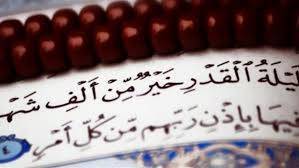 لَيْلَةُ ٱلْقَدْرِ خَيْرٌ مِّنْ أَلْفِ شَهْـ
فِيهَا بِإِذْنِ رَبِّهِم مِّن كُلِّ أَمْرٍ ٤